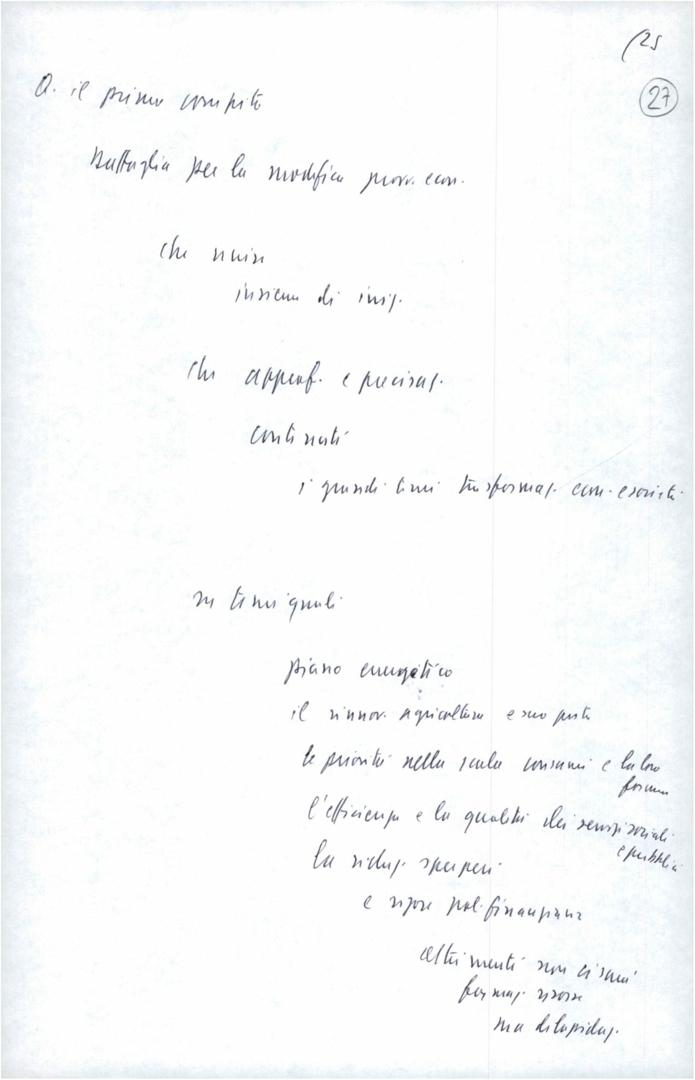 (25
27
Q. il primo compito
Battaglia per la modifica provv. econ.
che unisce
insieme di iniz.
che approf. e precisaz.
contenuti
i grandi temi trasformaz. econ. e società
su temi quali
piano energetico
il rinnov. agricoltura e suo posto
le priorità nella scala consumi e la loro
forma
l'efficienza e la qualità dei servizi sociali
e pubblici
la riduz. sperperi
e rigore pol. finanziaria
altrimenti non ci sarà
formaz. risorse
ma dilapidaz.